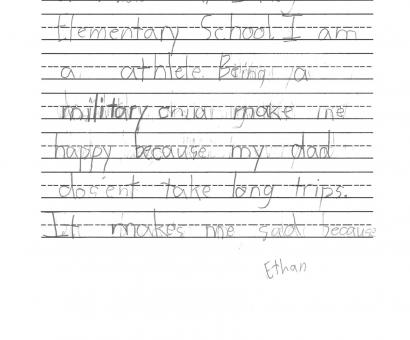 Elementary School. I am
a athlete. Being a
military child make me
happy because my dad
dosent take long trips.
It makes me sad because
Ethan